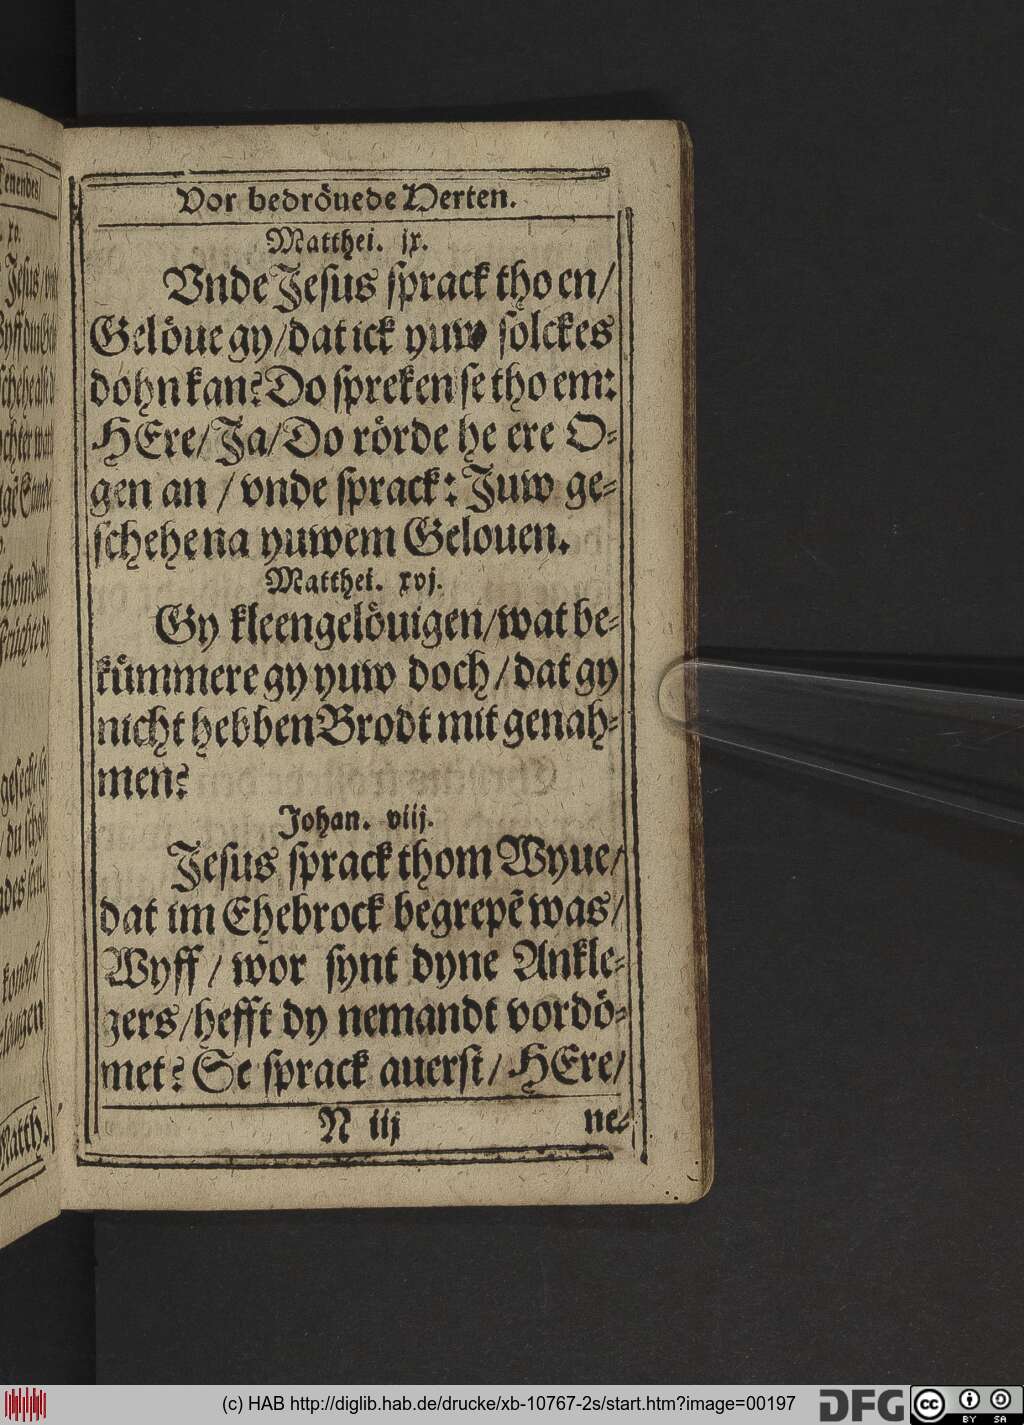 Vor bedröuede Herten.
Matthei. jx.
Vnde Jesus sprack tho en/
Gelöue gy/ dat ick yuw solckes
dohn kan? Do spreken se tho em:
HEre/ Ja/ Do rörde he ere O-
gen an / vnde sprack: Juw ge-
schehe na yuwem Gelouen.
Matthei. xvj.
Gy kleengelöuigen/ wat be-
kümmere gy yuw doch/ dat gy
nicht hebben Brodt mit genah-
men?
Johan. viij.
Jesus sprack thom Wyue/
dat im Ehebrock begrepẽ was/
Wyff/ wor synt dyne Ankle-
gers/ hefft dy nemandt vordö-
met? Se sprack auerst/ HEre/
N iij ne-
(c) HAB http://diglib.hab.de/drucke/xb-10767-2s/start.htm?image=00197
DFG
cc BY SA